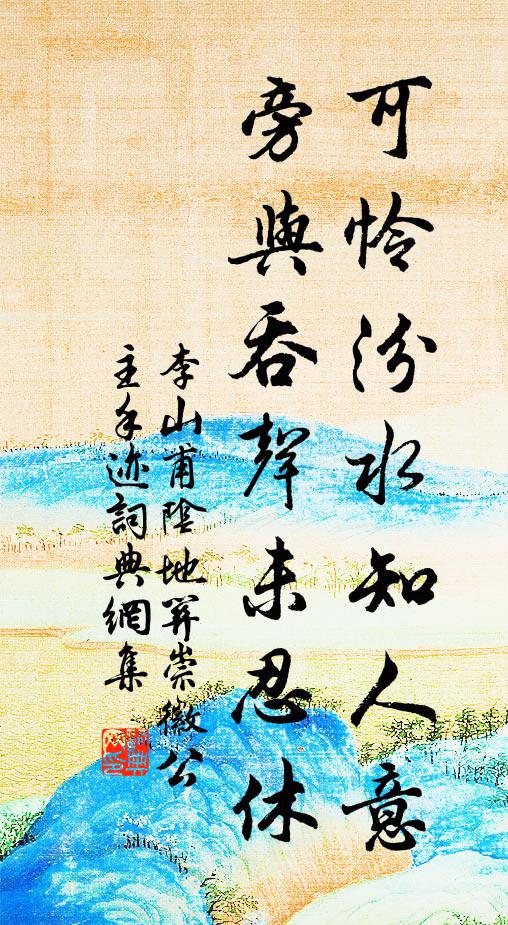 可怜汾水知人意
旁與吞聲未忍休
李山甫陰地關崇徽公
主手迹詞典網集